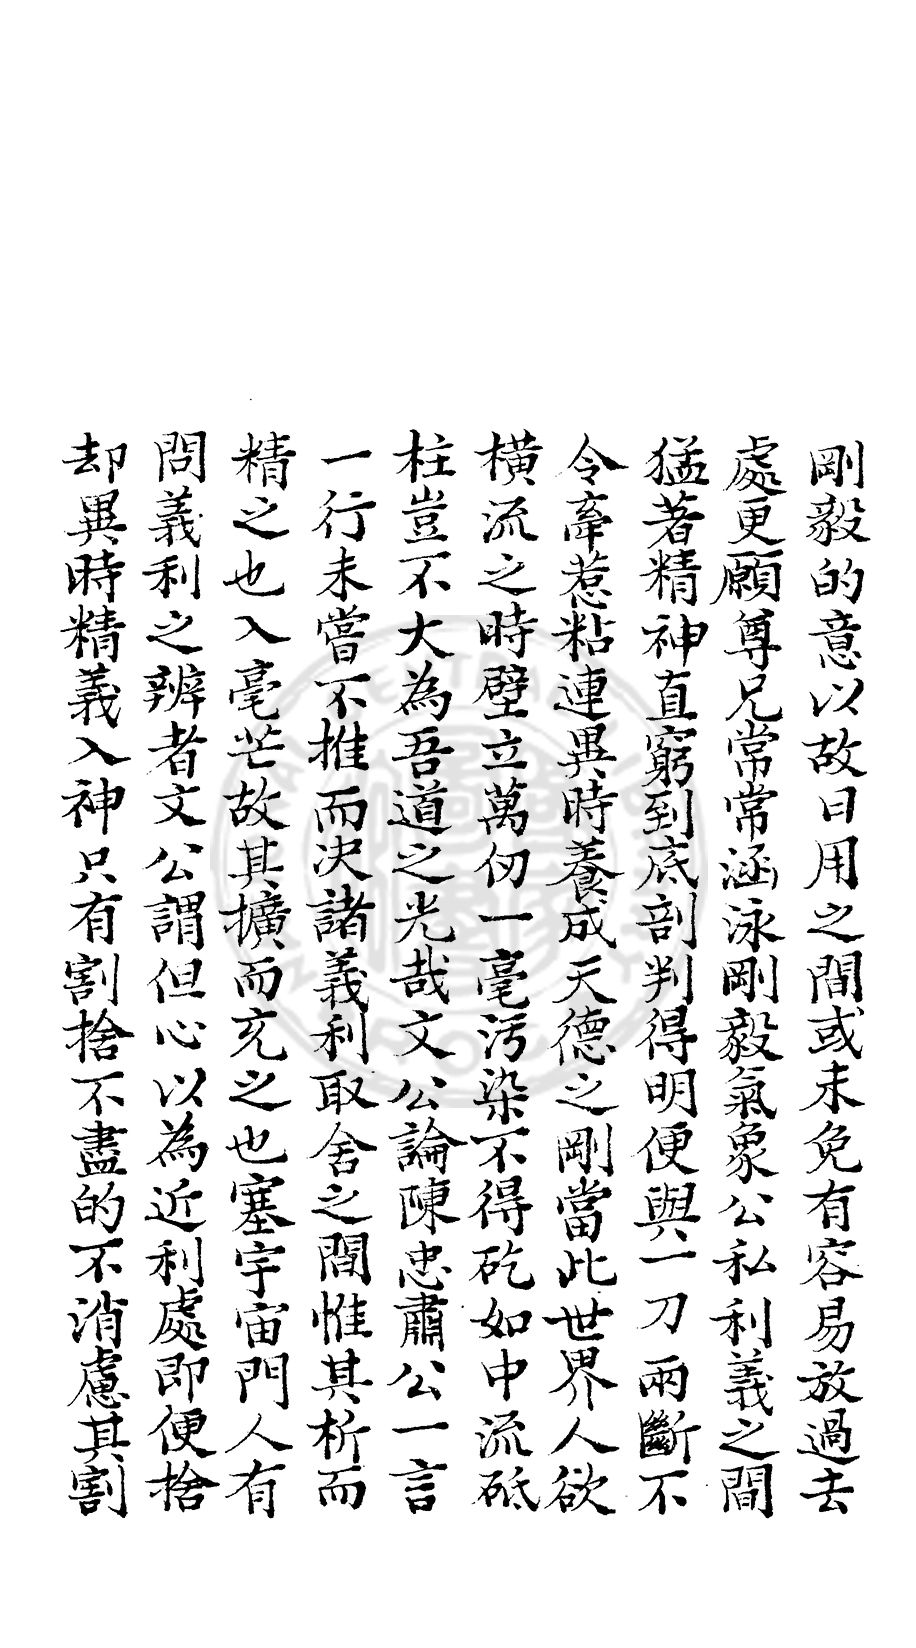 剛毅的意以故日用之間或未免有容易放過去
處更願尊兄常常涵泳剛毅氣象公私利義之間
猛著精神直窮到底剖判得明便與一刀兩斷不
令牽惹粘連異時養成天德之剛當此世界人欲
橫流之時壁立萬仞一毫污染不得矻如中流砥
柱豈不大為吾道之光哉文公論陳忠肅公一言
一行未嘗不推而決諸義利取舍之間惟其析而
精之也入毫芒故其擴而充之也塞宇宙門人有
問義利之辨者文公謂但心以為近利處即便捨
却異時精義入神只有割捨不盡的不消慮其割